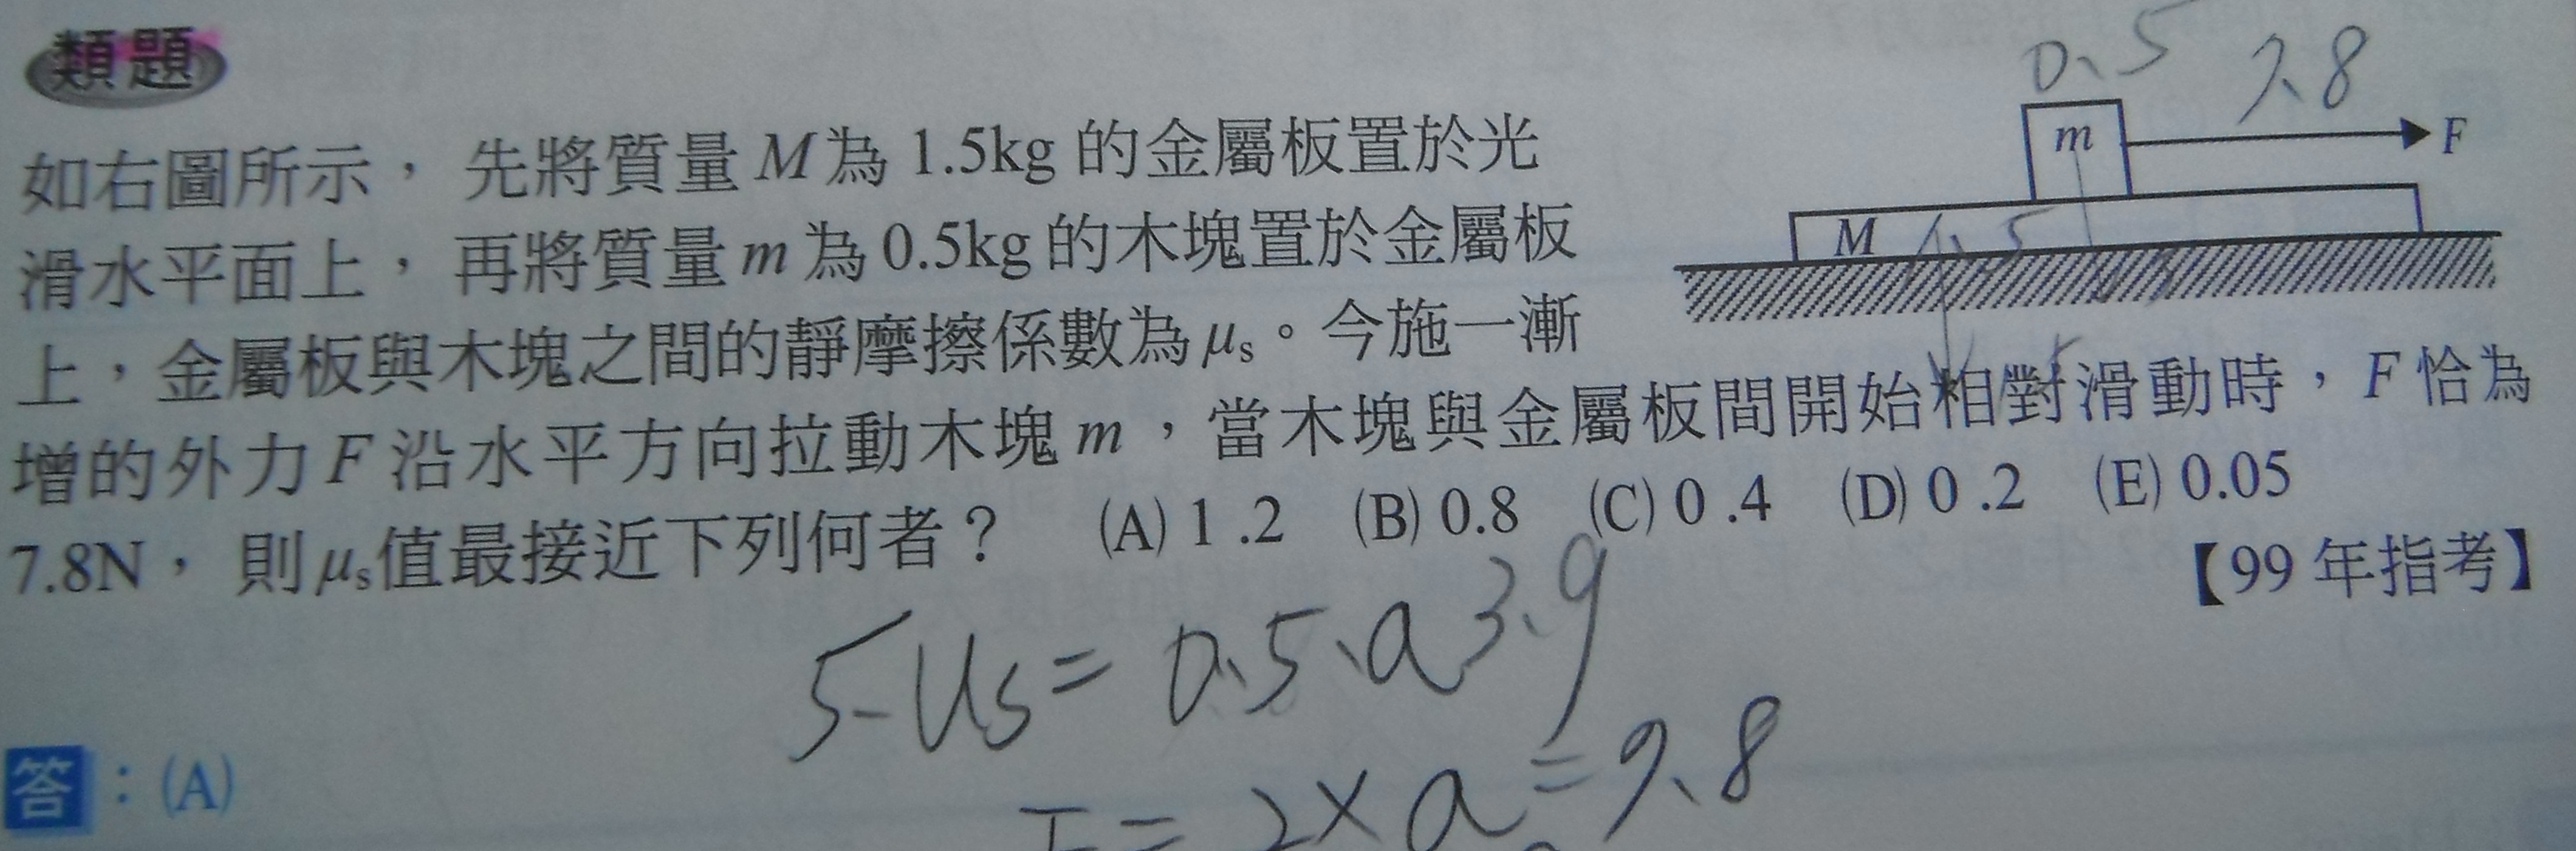 類題
如右圖所示，先將質量M為1.5kg的金屬板置於光
滑水平面上，再將質量m為0.5kg的木塊置於金屬板
上，金屬板與木塊之間的靜摩擦係數為μs。今施一漸
增的外力F沿水平方向拉動木塊m，當木塊與金屬板間開始相對滑動時，F恰為
7.8N，則μs值最接近下列何者？ (A) 1.2 (B) 0.8 (C) 0.4 (D) 0.2 (E) 0.05
【99年指考】
0.5
7.8
m
F
M
1.5
5 Us = 0.5.a 3.9
F = 2×a = 7.8
答：(A)